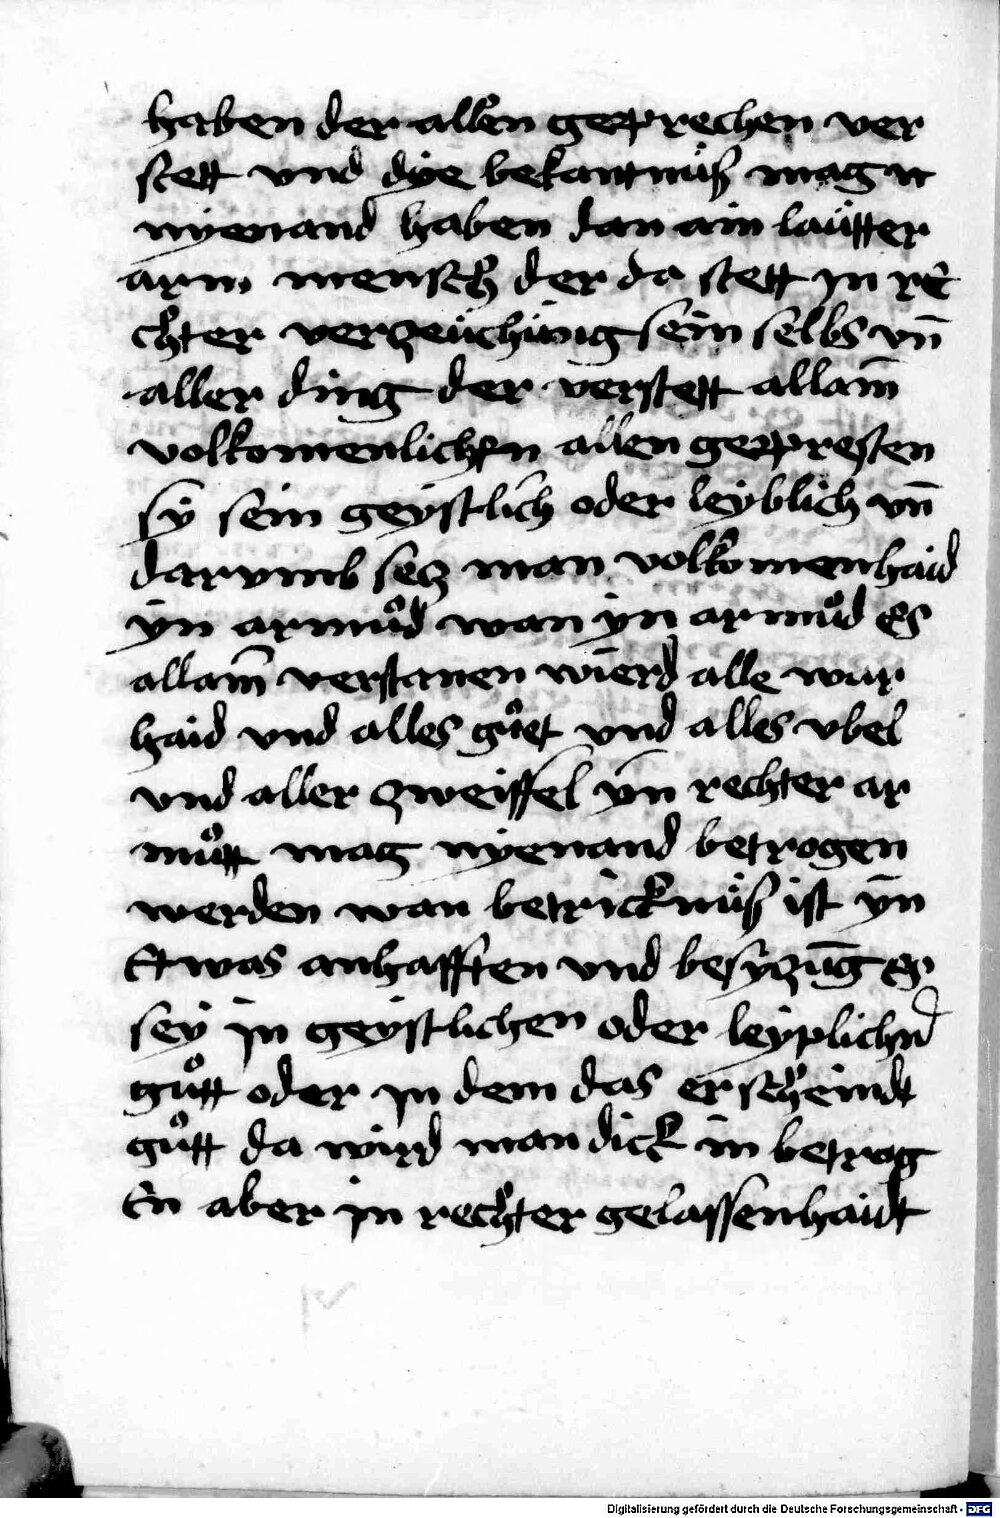 haben der allen geprechen ver
stett vnd dye bekantnuͤß mag n
nyemand haben dan ain laŭtter
arm mensch der da stett jn re
chter verzeŭchŭng sein selbs vn̄
aller ding der verstett allain̄
volkomenlichen allen gepresten
sÿ sein geystlich oder leyblich vn̄
darvmb secz man volkomenhaid
ÿn armuͦd wan ÿn armuͦd es
allain̄ verstanen wierd alle war
haid vnd alles guͦet vnd alles vbel
vnd aller zweiffel ÿn rechter ar
muͦtt mag nyemand betrogen
werden wan betricknuͤß ist ÿn
Etwas anhafften vnd besyczūg es
seÿ jn geystlichen oder leyplichn̄
guͦtt oder jn dem das erscheindt
guͦtt da wird man dick in betrog
En aber jn rechter gelassenhaidt
Digitalisierung gefördert durch die Deutsche Forschungsgemeinschaft - DFG